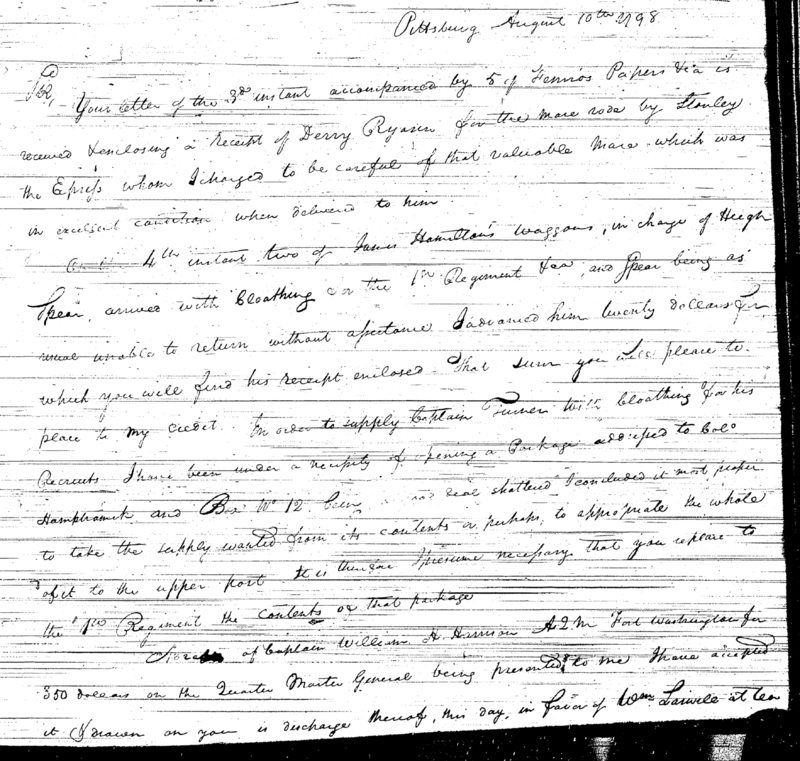 Pittsburg August 10th 1798
Sir, Your letter of the 3d instant accompanied by 5 of Fennos Papers &ca is
received & enclosing a receipt of Derry Ryann for the mare rode by Stanley
the Express whom I charged to be careful of that valuable mare which was
in excelent condition when delivered to him.
On the 4th instant two of James Hamilton's Waggons, in charge of Hugh
Spear, arrived with Cloathing for the 1st Regiment &ca, and Spear being as
usual unable to return without assistance I advanced him twenty dollars for
which you will find his receipt enclosed That sum you will please to
place to my credit. In order to supply Captain Turner with Cloathing for his
Recruits I have been under a necessity of opening a Package addressed to Colo
Hamtramck and Box No 12 being deal shattered I concluded it most proper
to take the supply wanted from its contents or perhaps, to appropriate the whole
of it to the upper post It is therefore I presume necessary that you replace to
the 1st Regiment the contents of that package
of Captain William H. Harrison A Q M Fort Washington for
350 dollars on the Quarter Master General being presented to me I have accepted
it & drawn on you in discharge thereof, this day, in favor of Wm at ten